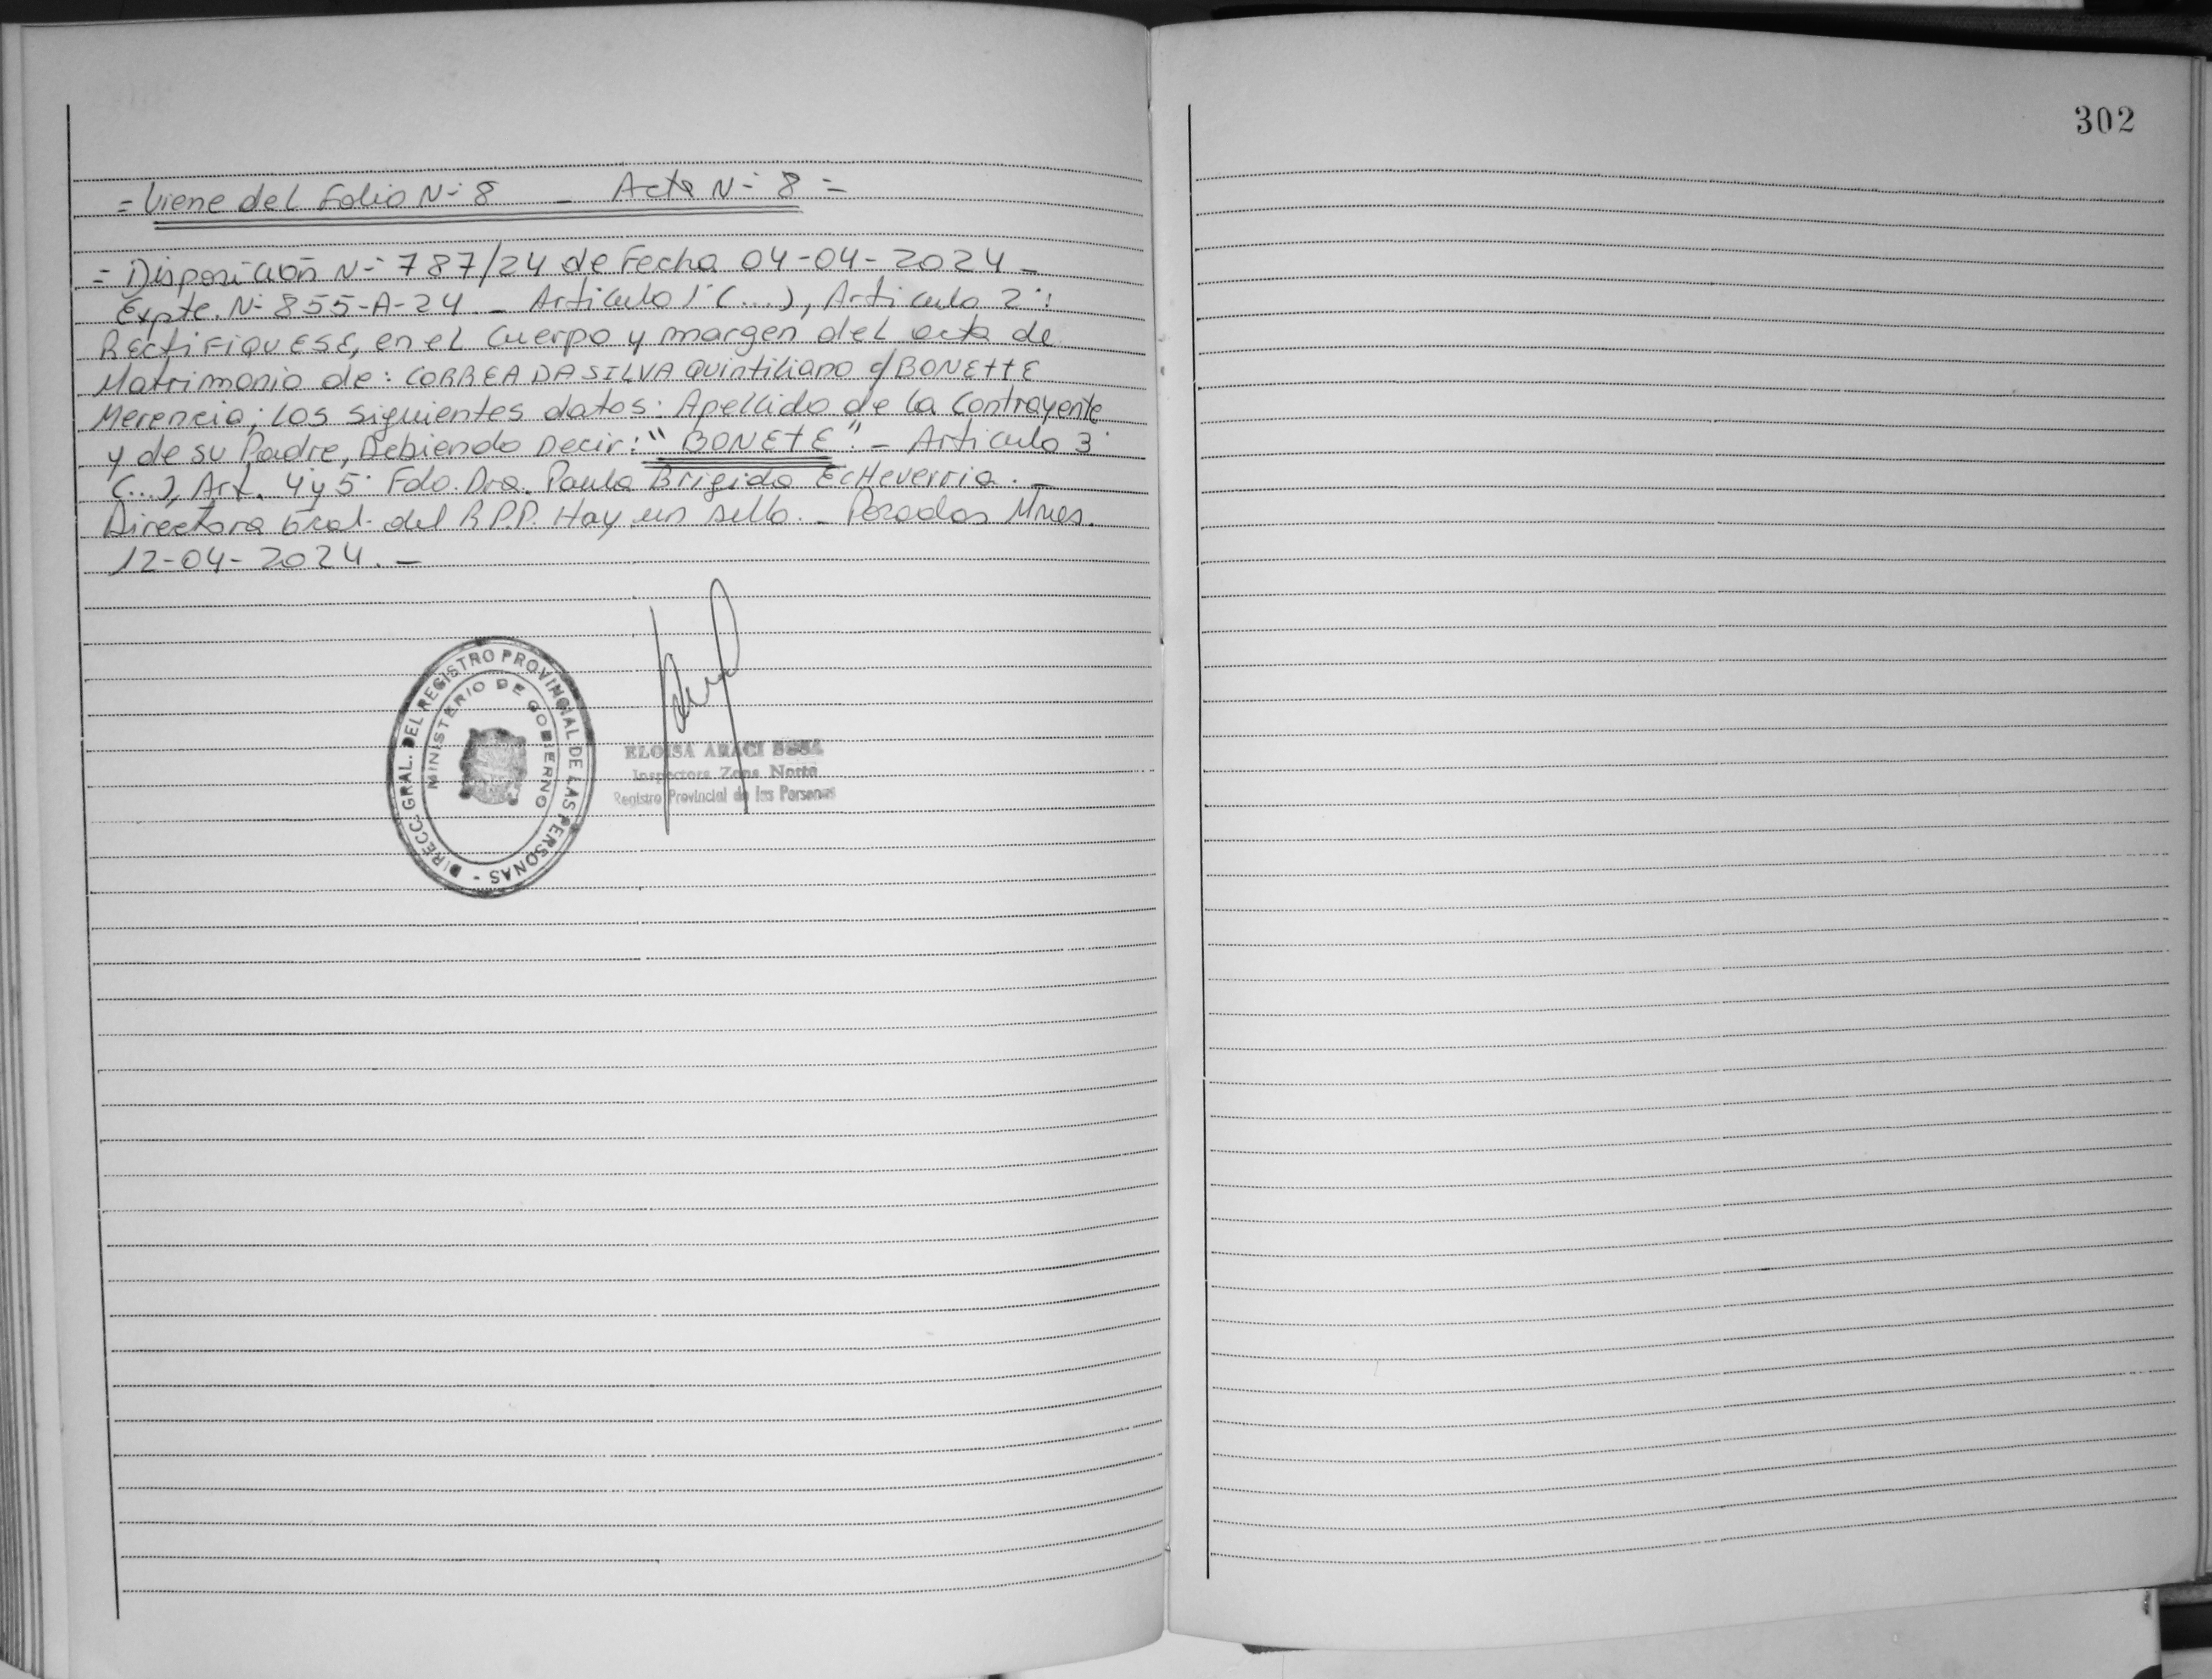 = Viene del Folio N° 8 _ Acta N° 8 =
= Disposición N° 787/24 de Fecha 04-04-2024 _
Expte. N° 855-A-24 _ Articulo 1° (...), Articulo 2°:
RECtiFIQUESE, en el Cuerpo y margen del acta de
Matrimonio de: CORREA DA SILVA Quintiliano c/ BONEttE
Merencia; Los siguientes datos: Apellido de la Contrayente
y de su Padre, Debiendo Decir: "BONEtE". - Articulo 3°
(...), Art. 4 y 5° Fdo. Dra. Paula Brigida EcHeverria. _
Directora Gral. del R.P.P. Hay un sello. _ Posadas Mnes.
12-04-2024. _
DIRECC. GRAL. DEL REGISTRO PROVINCIAL DE LAS PERSONAS -
MINISTERIO DE GOBIERNO
ELOISA ARACI
Inspectora Zona Norte
Registro Provincial de las Personas
302